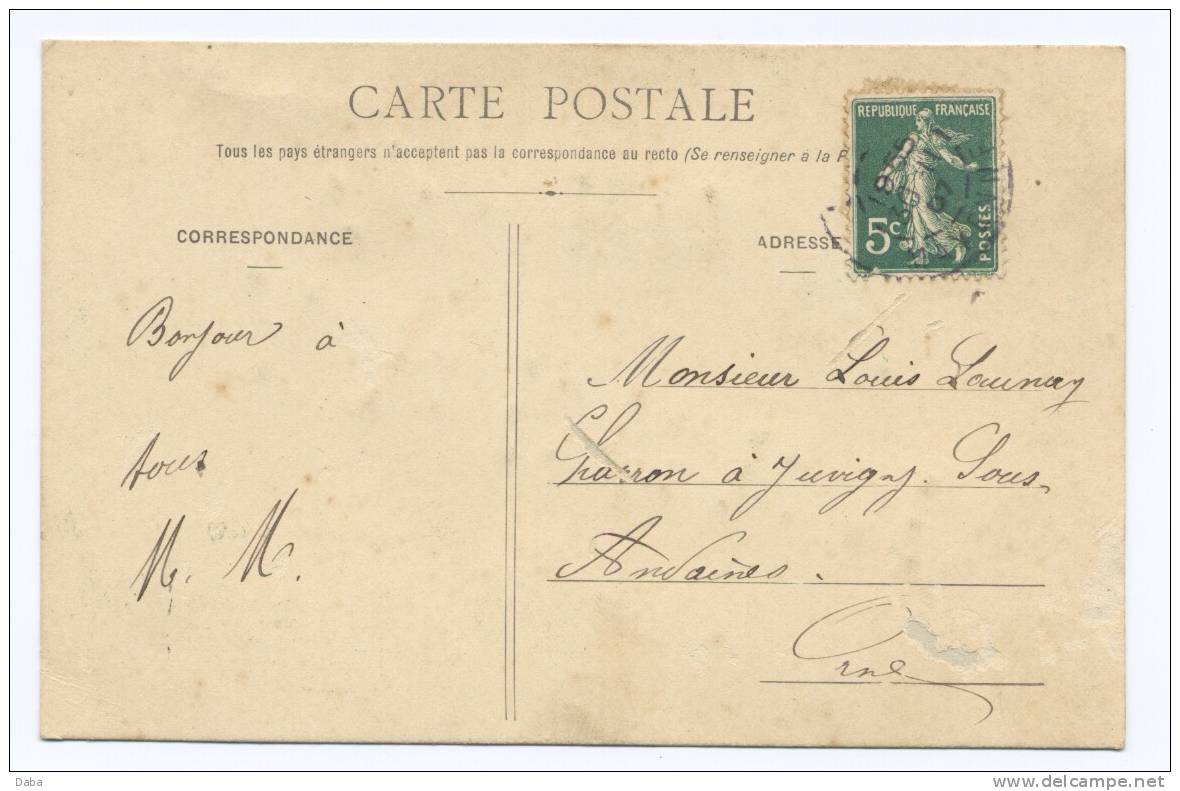 CARTE POSTALE
Tous les pays étrangers n'acceptent pas la correspondance au recto (Se renseigner à la P
CORRESPONDANCE
ADRESSE
REPUBLIQUE FRANÇAISE
5c
POSTES
Bonjour à
tous
M. M.
Monsieur Louis Launay
Charron à Juvigny. Sous-
Andaines.
Orne
Daba
delcampe.net